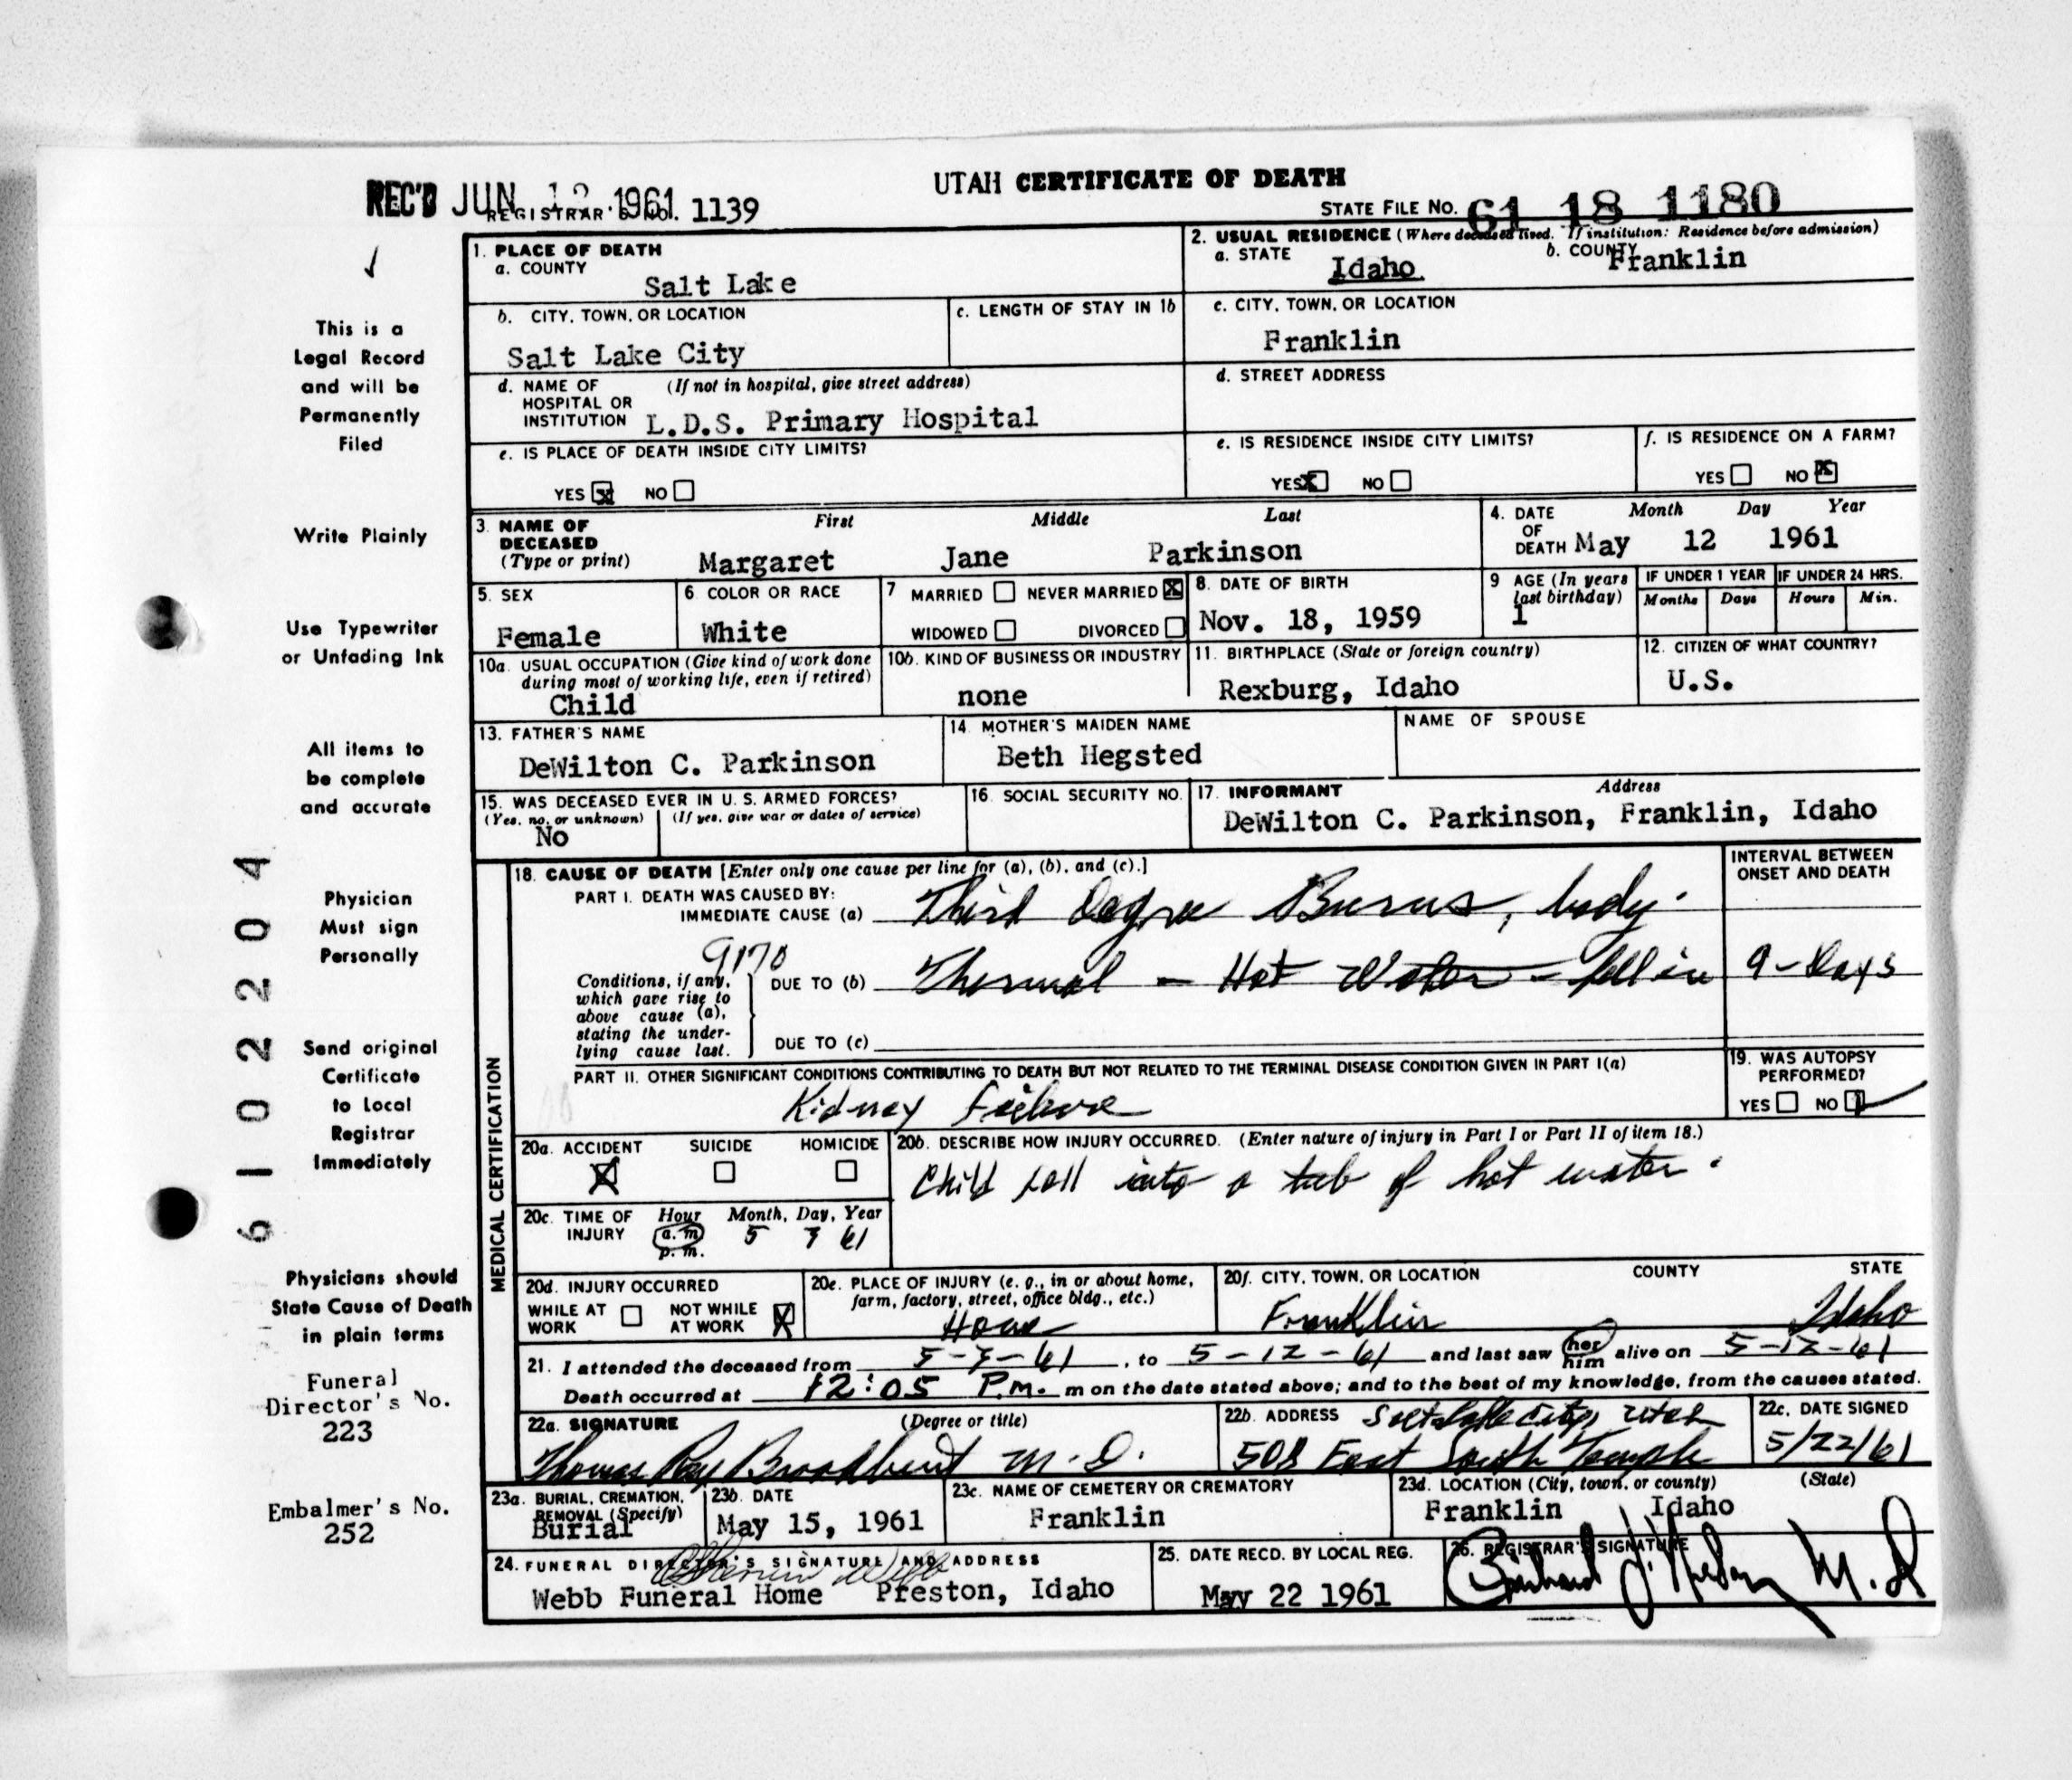 UTAH CERTIFICATE OF DEATH
REC'D JUN 12 1961
REGISTRAR'S NO. 1139
STATE FILE NO. 61 18 1180
1. PLACE OF DEATH
a. COUNTY
Salt Lake
2. USUAL RESIDENCE (Where deceased lived. If institution: Residence before admission)
a. STATE b. COUNTY
Idaho Franklin
b. CITY, TOWN, OR LOCATION
Salt Lake City
c. LENGTH OF STAY IN 1b
c. CITY, TOWN, OR LOCATION
Franklin
d. NAME OF (If not in hospital, give street address)
HOSPITAL OR
INSTITUTION L.D.S. Primary Hospital
d. STREET ADDRESS
e. IS PLACE OF DEATH INSIDE CITY LIMITS?
YES X NO
e. IS RESIDENCE INSIDE CITY LIMITS?
YES X NO
f. IS RESIDENCE ON A FARM?
YES NO X
3. NAME OF
DECEASED
(Type or print)
First Middle Last
Margaret Jane Parkinson
4. DATE Month Day Year
OF
DEATH May 12 1961
5. SEX
Female
6. COLOR OR RACE
White
7 MARRIED NEVER MARRIED X
WIDOWED DIVORCED
8. DATE OF BIRTH
Nov. 18, 1959
9 AGE (In years
last birthday)
1
IF UNDER 1 YEAR
Months Days
IF UNDER 24 HRS.
Hours Min.
10a. USUAL OCCUPATION (Give kind of work done
during most of working life, even if retired)
Child
10b. KIND OF BUSINESS OR INDUSTRY
none
11. BIRTHPLACE (State or foreign country)
Rexburg, Idaho
12. CITIZEN OF WHAT COUNTRY?
U.S.
13. FATHER'S NAME
DeWilton C. Parkinson
14. MOTHER'S MAIDEN NAME
Beth Hegsted
NAME OF SPOUSE
15. WAS DECEASED EVER IN U.S. ARMED FORCES?
(Yes, no, or unknown) (If yes, give war or dates of service)
No
16. SOCIAL SECURITY NO.
17. INFORMANT Address
DeWilton C. Parkinson, Franklin, Idaho
MEDICAL CERTIFICATION
18. CAUSE OF DEATH [Enter only one cause per line for (a), (b), and (c).]
INTERVAL BETWEEN
ONSET AND DEATH
PART I. DEATH WAS CAUSED BY:
IMMEDIATE CAUSE (a) Third Degree Burns, body.
9170
Conditions, if any,
which gave rise to
above cause (a),
stating the under-
lying cause last.
DUE TO (b) Thermal - Hot Water - fell in 9-Days
DUE TO (c)
PART II. OTHER SIGNIFICANT CONDITIONS CONTRIBUTING TO DEATH BUT NOT RELATED TO THE TERMINAL DISEASE CONDITION GIVEN IN PART I(a)
Kidney Failure
19. WAS AUTOPSY
PERFORMED?
YES NO
20a. ACCIDENT SUICIDE HOMICIDE
X
20b. DESCRIBE HOW INJURY OCCURRED. (Enter nature of injury in Part I or Part II of item 18.)
Child fell into a tub of hot water.
20c. TIME OF Hour Month, Day, Year
INJURY a.m. 5 3 61
p.m.
20d. INJURY OCCURRED
WHILE AT WORK NOT WHILE AT WORK X
20e. PLACE OF INJURY (e. g., in or about home,
farm, factory, street, office bldg., etc.)
Home
20f. CITY, TOWN, OR LOCATION COUNTY STATE
Franklin Idaho
21. I attended the deceased from 5-3-61, to 5-12-61 and last saw her him alive on 5-12-61
Death occurred at 12:05 P.m. m on the date stated above; and to the best of my knowledge, from the causes stated.
22a. SIGNATURE (Degree or title)
Thomas Ray Broadbent M.D.
22b. ADDRESS Salt Lake City, Utah
508 East South Temple
22c. DATE SIGNED
5/22/61
23a. BURIAL, CREMATION,
REMOVAL (Specify)
Burial
23b. DATE
May 15, 1961
23c. NAME OF CEMETERY OR CREMATORY
Franklin
23d. LOCATION (City, town, or county) (State)
Franklin Idaho
24. FUNERAL DIRECTOR'S SIGNATURE AND ADDRESS
Webb
Webb Funeral Home Preston, Idaho
25. DATE RECD. BY LOCAL REG.
May 22 1961
26. REGISTRAR'S SIGNATURE
M.D
This is a
Legal Record
and will be
Permanently
Filed
Write Plainly
Use Typewriter
or Unfading Ink
All items to
be complete
and accurate
Physician
Must sign
Personally
Send original
Certificate
to Local
Registrar
Immediately
Physicians should
State Cause of Death
in plain terms
Funeral
Director's No.
223
Embalmer's No.
252
6102204